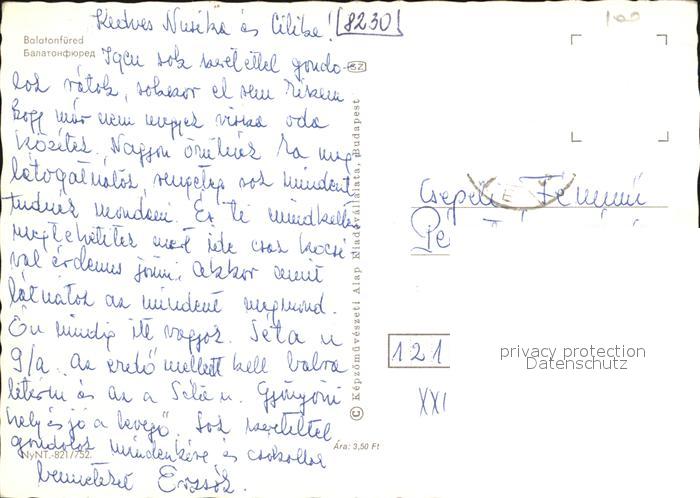 Kedves Nusika és Cilike! 8230
Balatonfüred
Балатонфюред
Igen sok szeretettel gondo-
lok rátok, sokszor el sem hiszem
hogy már nem megyek vissza oda
közétek. Nagyon örülnék ha meg
látogatnátok, rengeteg sok mindent
tudnék mondani. Ez ti mindketten
megtehetitek mert ide csak kocsi
val érdemes jönni. Akkor amit
látnátok az mindent megmond.
Én mindig itt vagyok. Séta u
9/a. az erdő mellett kell balra
letérni és az a Séta u. Gyönyörű
hely és jó a levegő. Sok szeretettel
gondolok mindenkire és csókollak
benneteket Erzsók.
NyNT.-821/752.
Ára: 3,50 Ft
SZ
© Képzőművészeti Alap Kiadóvállalata, Budapest
Csepeli Fémmű
121
XXI
privacy protection
Datenschutz